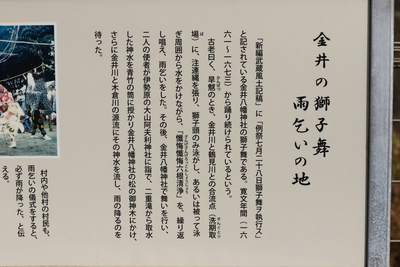 金井の獅子舞
雨乞いの地
「新編武蔵風土記稿」に「例祭七月二十八日獅子舞ヲ執行ス」
と記されている金井八幡神社の獅子舞である。寛文年間（一六
六一～一六七三）から踊り続けられているという。
古老曰く、旱魃のとき、金井川と鶴見川との合流点（洗期取
場）に、注連縄を張り、獅子頭のみ泳がし、あるいは被って泳
ぎ周囲から水をかけながら、「懺悔懺悔六根清浄」を、繰り返
し唱え、雨乞いをした。その後、金井八幡神社で舞いを行い、
二人の使者が伊勢原の大山阿夫利神社に詣で、二重滝から取水
した神水を青竹の筒に授かり金井八幡神社の松の御神木にかけ、
さらに金井川と木倉川の源流にその神水を流し、雨の降るのを
待った。
村内や他村の村民も、
雨乞いの儀式をすると、
必ず雨が降った、と伝
える。